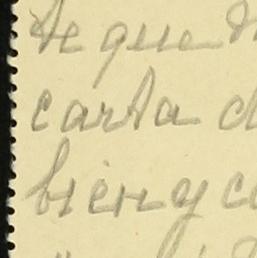 de que
carta d
bien y co